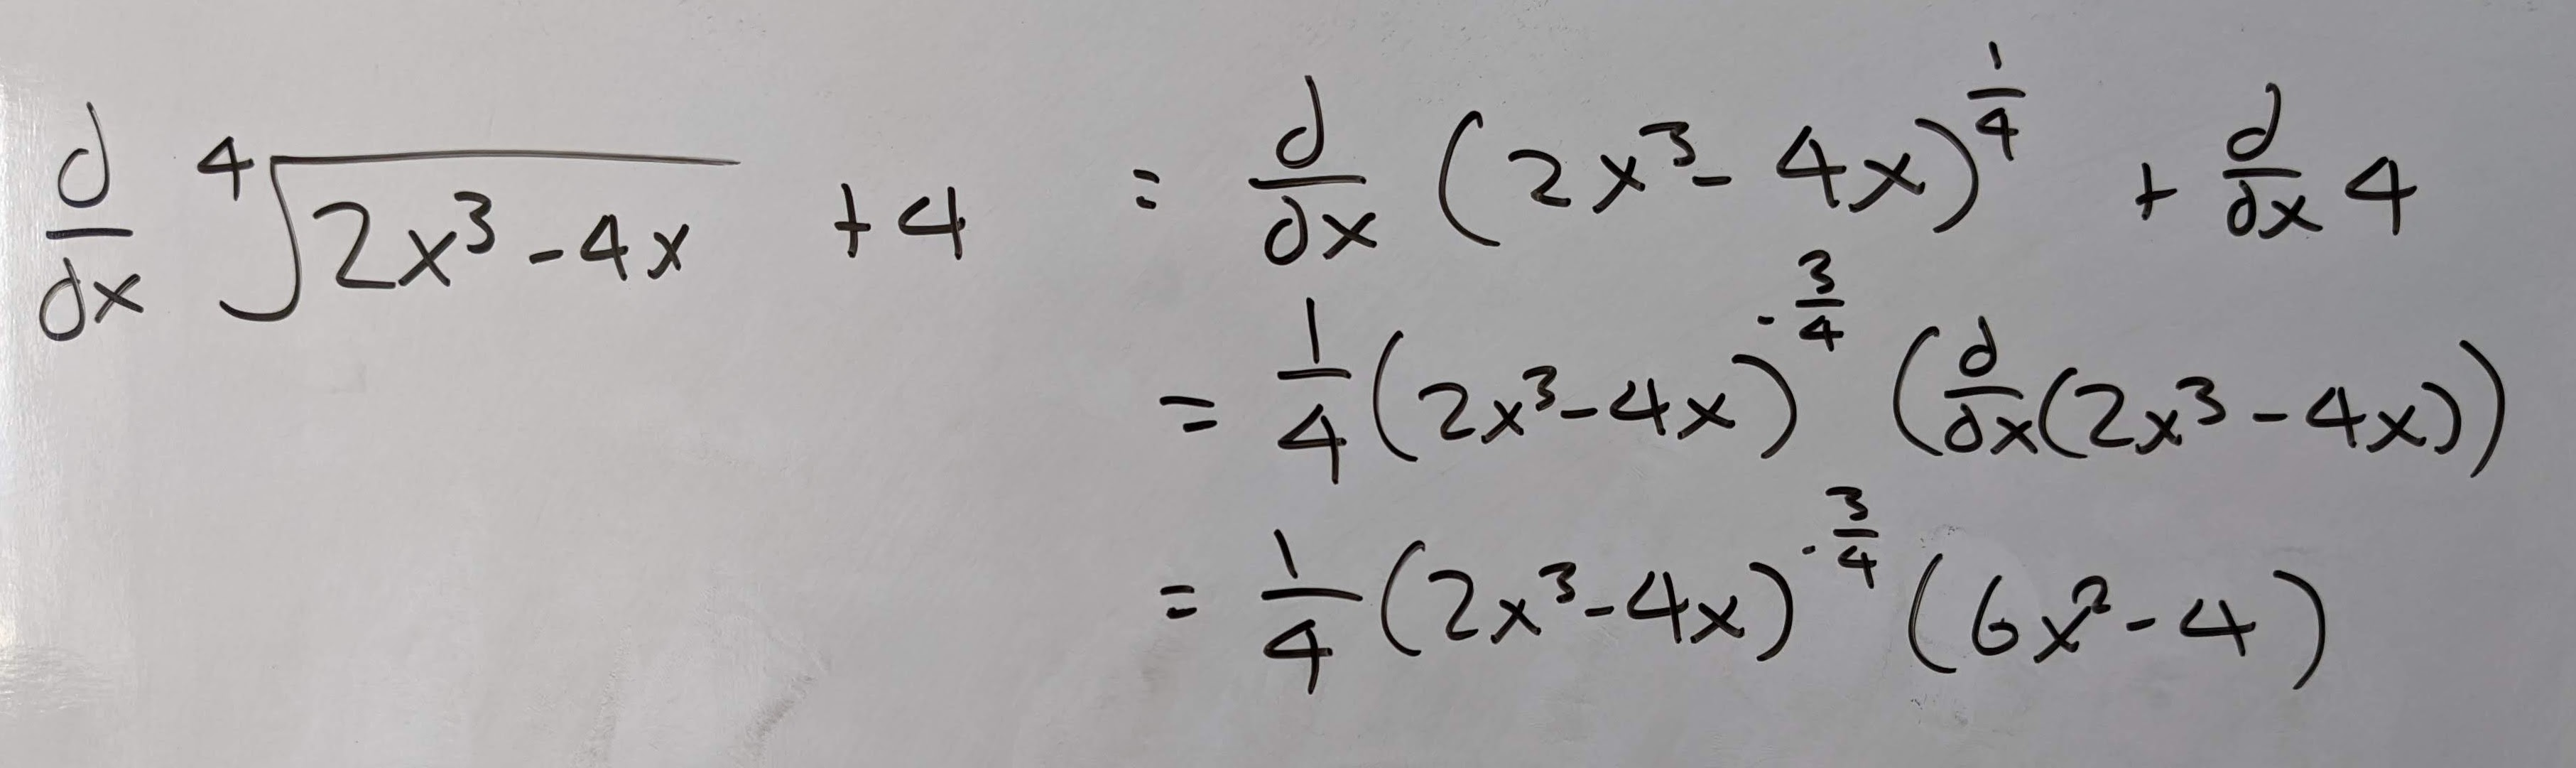 d/dx ∜(2x³ - 4x) + 4 = d/dx (2x³ - 4x)^(1/4) + d/dx 4
= 1/4 (2x³ - 4x)^(-3/4) (d/dx (2x³ - 4x))
= 1/4 (2x³ - 4x)^(-3/4) (6x² - 4)